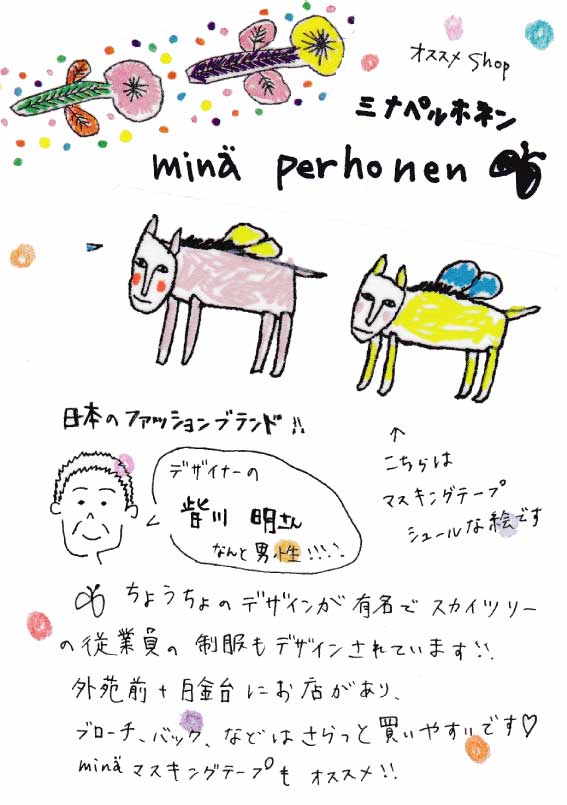 オススメ Shop
ミナペルホネン
minä perhonen
日本のファッションブランド!!
デザイナーの
皆川 明さん
なんと男性!!!!
↑
こちらは
マスキングテープ
シュールな絵です
ちょうちょのデザインが有名でスカイツリー
の従業員の制服もデザインされています!!
外苑前+白金台にお店があり、
ブローチ、バック、などはさらっと買いやすいです♡
minäマスキングテープもオススメ!!